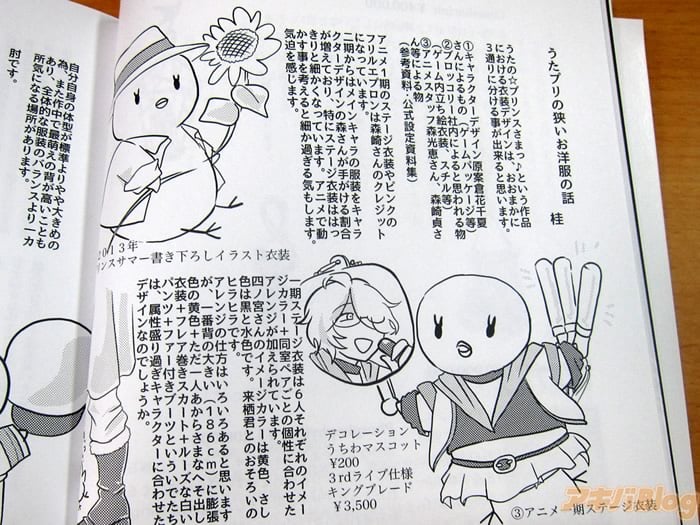 うたプリの狭いお洋服の話　桂
うたの☆プリンスさまっ♪という作品
における衣装デザインは、おおまかに
3通りに分ける事が出来ると思います。
①キャラクターデザイン原案倉花千夏
さんによるもの（ゲームパッケージ等）
②ブロッコリー社内によると思われる物
（ゲーム内立ち絵衣装、スチル等）
③アニメスタッフ森光恵さん、森崎貞さ
ん等による物
（参考資料：公式設定資料集）
アニメ1期のステージ衣装やピンクの
フリルエプロンは森崎さんのクレジット
になっています。
二期からはメインキャラの服装をキャラ
クターデザインの森さんが手がける割合
が増えており、特にステージ衣装ははっ
きりと細かくなっています。アニメで動
かす事を考えると細か過ぎる気もします。
気迫を感じます。
2013年
リンスサマー書き下ろしイラスト衣装
一期ステージ衣装は6人それぞれのイメー
ジカラー＋同室ペアごとの個性に合わせた
アレンジが加えられています。
四ノ宮さんのイメージカラーは黄色、さし
色は黒と水色です。来栖君とのおそろいの
ヒラヒラです。
アレンジの仕方はいろいろあると思います
が、一番背の大きい（186cm）に膨張
色の黄色＋ただ一人あからさまなへそ出し
衣装＋フレア巻きスカート＋ルーズな白い
パンツ＋ファー付きブーツといういでたち
は、属性盛り過ぎキャラクターに合わせた
デザインなのでしょうか。
デコレーション
うちわマスコット
¥200
3rdライブ仕様
キングブレード
¥3,500
③アニメ一期ステージ衣装
自分自身の体型が標準よりやや大きめの
為、また作中で最萌えの背が高いことも
あり、全体的な服装のバランスより一カ
所気になる場所があります。
肘です。
アキバBlog